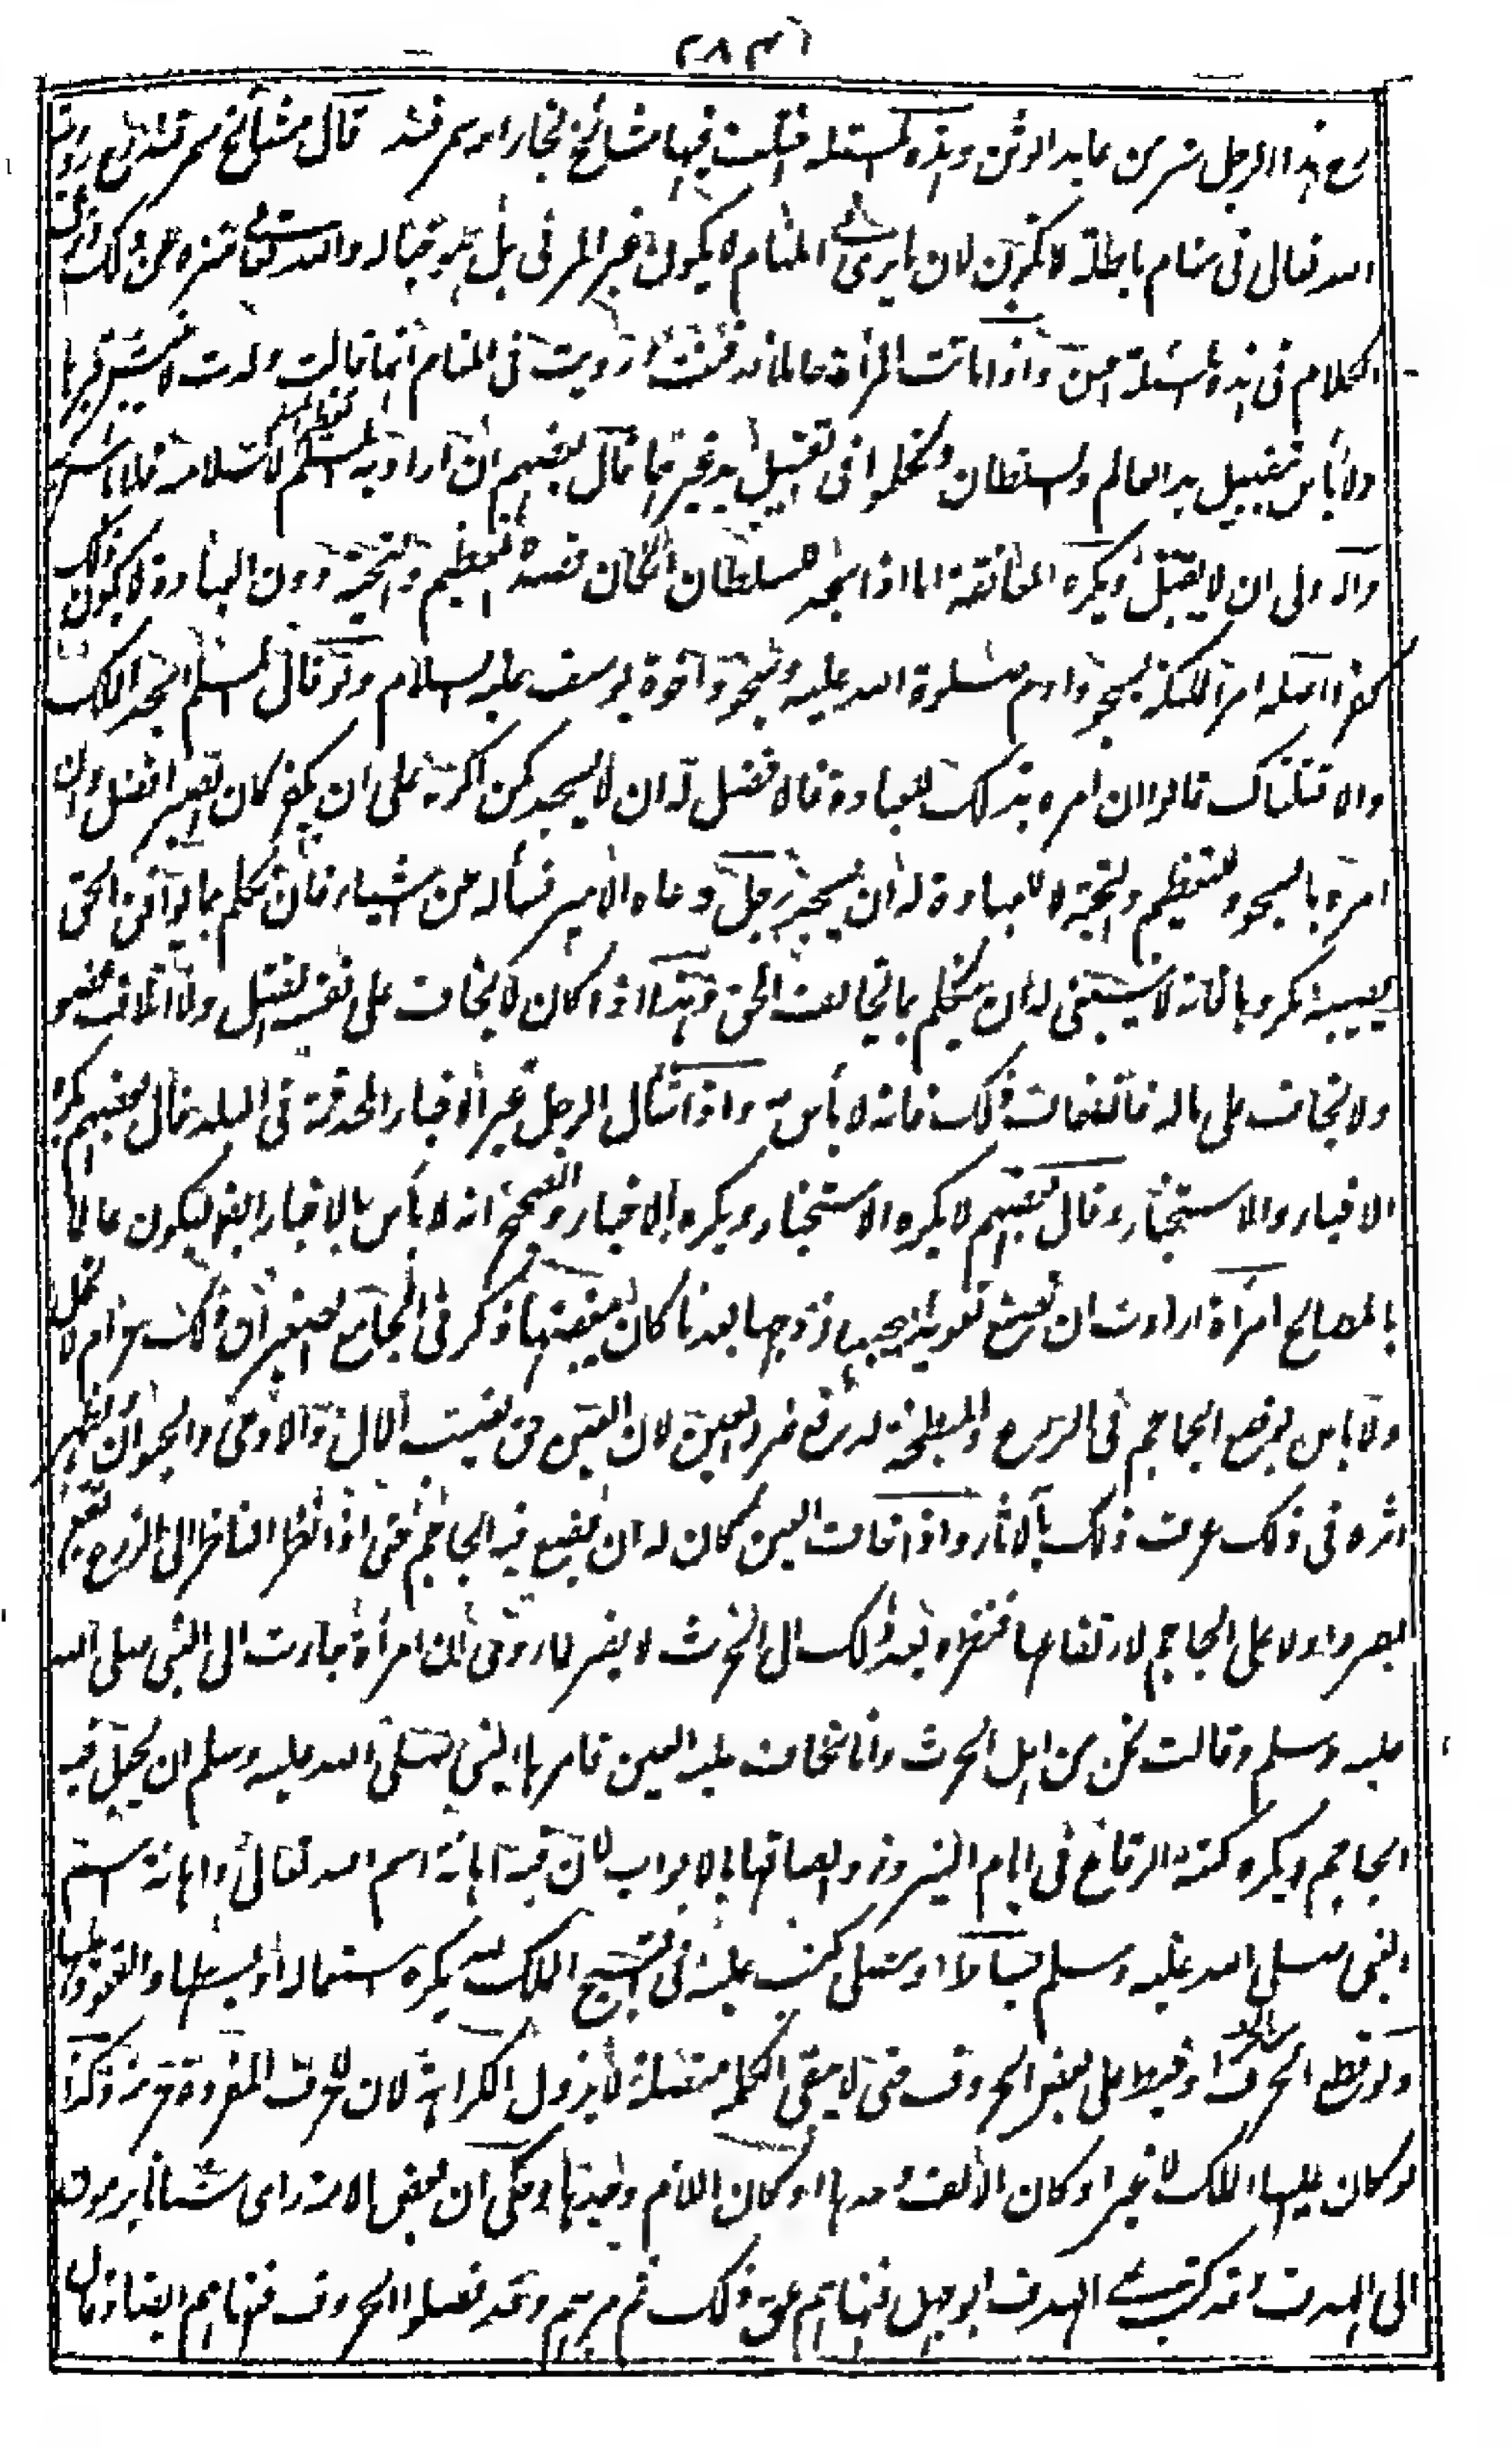 ٢٨٣
رح هذا الرجل شر من عابد الوثن وهذه المسئلة اختلفت فيها مشائخ بخارا وسمرقند قال مشائخ سمرقند رح رؤية
الله تعالى في المنام باطلة لا تكون لان ما يرى في المنام لا يكون غير المرئي بل هو خياله والله تعالى منزه عن ذلك وترك
الكلام في هذه المسئلة احسن واذا ماتت المرأة حاملا فدفنت فرؤيت في المنام انها قالت ولدت لا ينبش قبرها
ولا بأس بتقبيل يد العالم والسلطان وتكلموا في تقبيل يد غيرهما قال بعضهم ان اراد به تعظيم المسلم لاسلامه فلا بأس به
والاولى ان لا يقبل ويكره المعانقة اما اذا سجد للسلطان ان كان قصده التعظيم والتحية دون العبادة لا يكون ذلك
كفرا اصله امر الملئكة بسجود ادم صلوة الله عليه وسجود اخوة يوسف عليه السلام ولو قال لمسلم اسجد للملك
والا قتلناك قالوا ان امره بذلك للعبادة فالافضل له ان لا يسجد كمن اكره على ان يكفر كان الصبر افضل وان
امره بالسجود للتعظيم والتحية لا للعبادة له ان يسجد رجل دعاه الامير فسأله عن اشياء فان تكلم بما يوافق الحق
يصيبه مكروه فانه لا ينبغي له ان يتكلم بما يخالف الحق وهذا اذا كان لا يخاف على نفسه القتل ولا اتلاف عضو
ولا يخاف على ماله فان خاف ذلك فانه لا بأس به واذا سأل الرجل غير الاخبار المحدثة في البلد قال بعضهم يكره
الاخبار والاستخبار وقال بعضهم لا يكره الاستخبار ويكره الاخبار والصحيح انه لا بأس بالاخبار ايضا ليكون عالما
بالمصالح امرأة ارادت ان تضع تعويذا ليحبها زوجها بعد ما كان يبغضها ذكر في الجامع الصغير ان ذلك حرام لا يحل
ولا بأس بوضع الجماجم في الزرع والمبطخة لدفع ضرر العين لان العين حق تصيب المال والآدمي والحيوان ويظهر
اثره في ذلك عرف ذلك بالآثار واذا خاف العين كان له ان يضع فيه الجماجم حتى اذا نظر الناظر الى الزرع يقع
البصر اولا على الجماجم لارتفاعها فنظره بعد ذلك الى الحرث لا يضر لما روي ان امرأة جاءت الى النبي صلى الله
عليه وسلم وقالت نحن من اهل الحرث وانا نخاف عليه العين فامرها النبي صلى الله عليه وسلم ان يجعل فيه
الجماجم ويكره كتبة الرقاع في ايام النيروز والصاقها بالابواب لان فيه اهانة اسم الله تعالى واهانة اسم
النبي صلى الله عليه وسلم بساط او مصلى كتب عليه في النسج الملك لله يكره استعماله وبسطها والقعود عليها
ولو قطع الحرف من الحرف او خيط على بعض الحروف حتى لا يبقى الكلمة متصلة لا يزول الكراهة لان للحروف المفردة حرمة وكذا
لو كان عليها الملك لا غير او كان الالف وحدها او كان اللام وحدها وحكي ان بعض الائمة رأى شبانا يرمون
الى الهدف وقد كتب على الهدف ابو جهل فنهاهم عن ذلك ثم مر بهم وقد فصلوا الحروف فنهاهم ايضا وقال